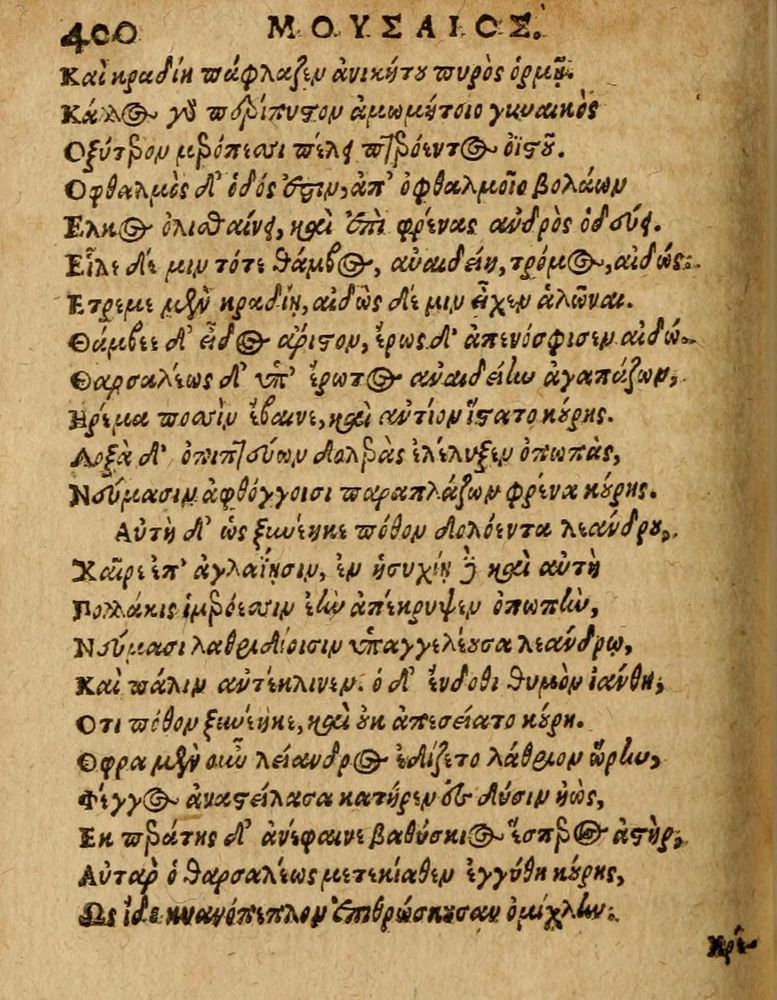 400 ΜΟΥΣΑΙΟΣ.
Καὶ κραδίη πάφλαζεν ἀνικήτου πυρὸς ὁρμῇ.
Κάλλος γὰρ περίπυστον ἀμωμήτοιο γυναικὸς
Οξύτερον μερόπεσσι πέλει πτερόεντος ὀϊστοῦ.
Οφθαλμὸς δ' ὁδός ἐστιν, ἀπ' ὀφθαλμοῖο βολάων
Ελκος ὀλισθαίνει, καὶ ἐπὶ φρένας ανδρὸς ὁδεύει.
Εἷλε δέ μιν τότε θάμβος, ἀναιδείη, τρόμος, αἰδώς.
Ετρεμε μὲν κραδίη, αἰδὼς δέ μιν εἶχεν ἁλῶναι.
Θάμβεε δ' εἶδος ἄριστον, ἔρως δ' ἀπενόσφισεν αἰδώ.
Θαρσαλέως δ' ὑπ' ἔρωτος ἀναιδείην ἀγαπάζων,
Ηρέμα ποσσὶν ἔβαινε, καὶ ἀντίον ἵστατο κούρης.
Λοξὰ δ' ὀπιπτεύων δολερὰς ἐλέλιξεν ὀπωπὰς,
Νεύμασιν ἀφθόγγοισι παραπλάζων φρένα κούρης.
Αὐτὴ δ' ὡς ξυνέηκε πόθον δολόεντα λεάνδρου,
Χαῖρε ἐπ' ἀγλαΐῃσιν, ἐν ἡσυχίῃ δὲ καὶ αὐτὴ
Πολλάκις ἱμερόεσσιν ἑὴν ἀπέκρυψεν ὀπωπὴν,
Νεύμασι λαθριδίοισιν ὑπαγγελέουσα λεάνδρῳ,
Καὶ πάλιν αντέκλινεν. ὁ δ' ἔνδοθι θυμὸν ἰάνθη,
Οτι πόθον ξυνέηκε, καὶ οὐκ ἀπεσείσατο κούρη.
Οφρα μὲν οὖν λείανδρος ἐδίζετο λάθριον ὥρην,
Φέγγος ἀναστείλασα κατήϊεν ἐς δύσιν ἠὼς,
Εκ περάτης δ' ἀνέφαινε βαθύσκιος ἕσπερος ἀστὴρ,
Αὐτὰρ ὁ θαρσαλέως μετεκίαθεν ἐγγύθι κούρης,
Ως ἴδε κυανόπεπλον ἐπιθρώσκουσαν ὀμίχλην.
Ηρέ-